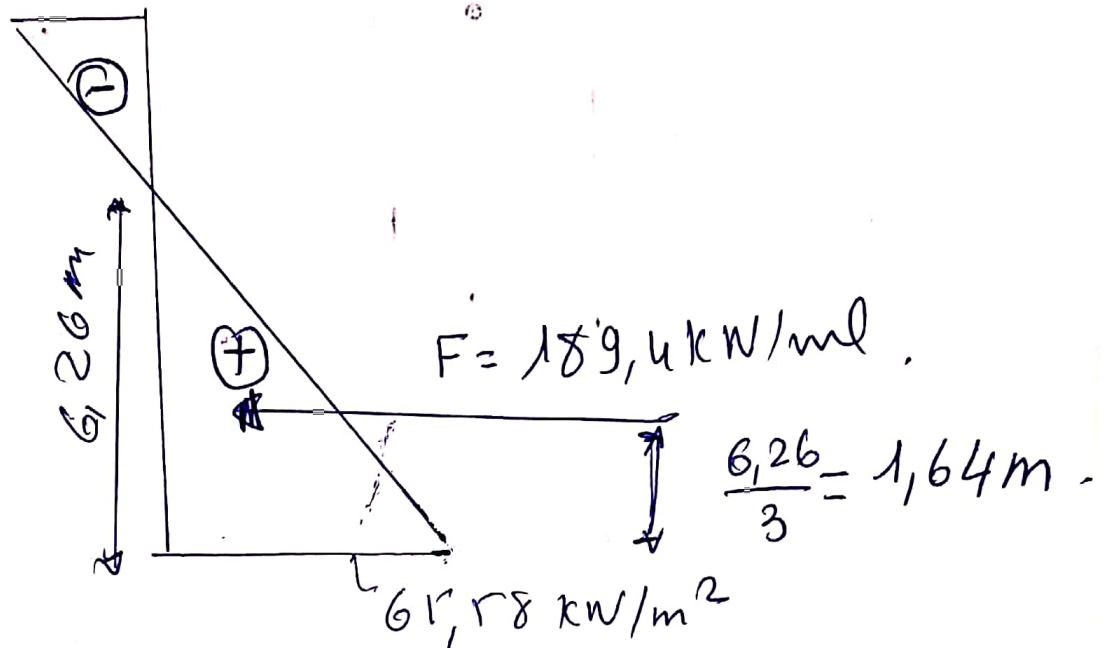 −
6,26 m
+
F = 189,4 kN/ml.
6,26/3 = 1,64 m.
65,58 kN/m²